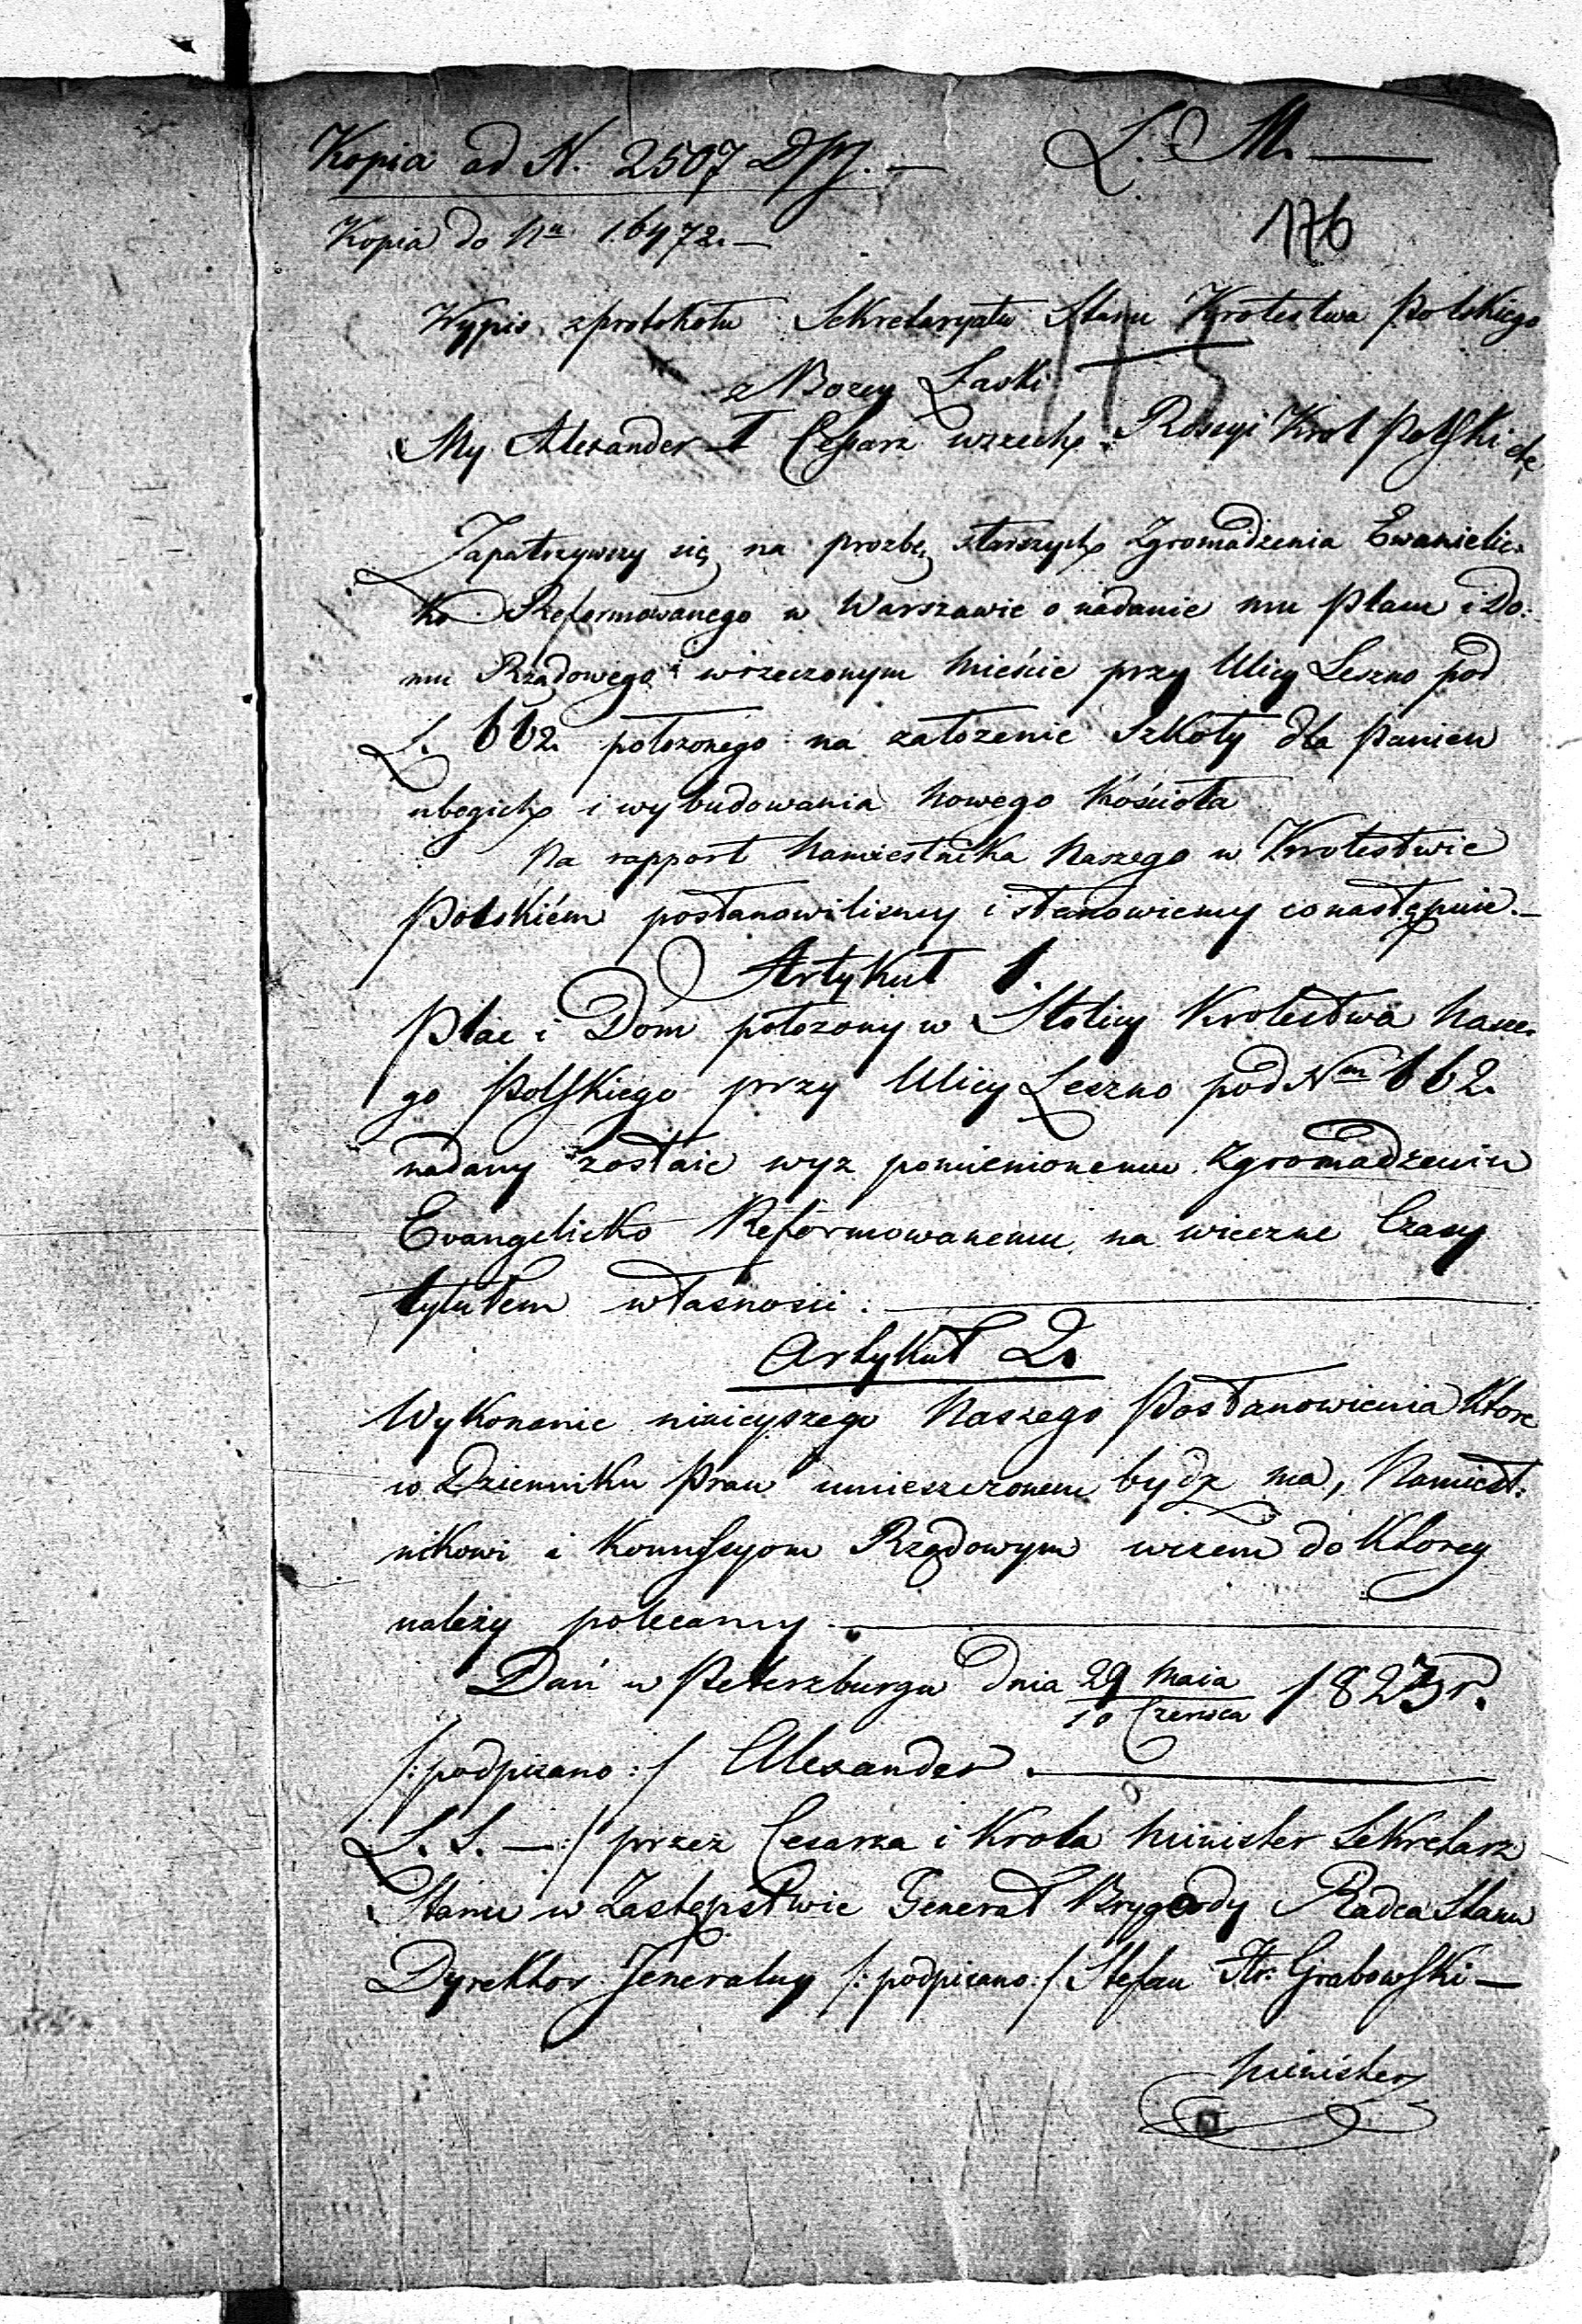 Kopia ad N. 2507 DPJ. — L. M. —
176
Kopia do Nu 16472. —
Wypis z protokołu Sekretaryatu Stanu Krolestwa Polskiego
z Bozey Łaski
My Alexander I Cesarz wszech Rossyi Krol Polski etc
Zapatrzywszy się na prozbę starszych Zgromadzenia Ewanielic-
ko Reformowanego w Warszawie o nadanie mu Placu i Do-
mu Rządowego w rzeczonym Mieście przy Ulicy Leszno pod
L. 662. położonego na założenie Szkoły dla Panien
ubogich i wybudowania Nowego Kościoła
Na rapport Namiestnika Naszego w Krolestwie
Polskiém postanowilismy i stanowiemy co następuie. —
Artykuł 1.
Plac i Dóm położony w Stolicy Krolestwa Nasze-
go Polskiego przy Ulicy Leszno pod Nm 662.
nadany zostaie wyz pomienionemu Zgromadzeniu
Evangelicko Reformowanemu na wieczne Czasy
tytułem własnosci. —
Artykuł 2.
Wykonanie ninieyszego Naszego Postanowienia które
w Dzienniku Praw umieszczonem bydz ma, Namiest-
nikowi i Kommissyom Rządowym wczem do ktorey
należy polecamy. —
Dań w Peterzburgu dnia 29 Maia / 10 Czerwca 1823 r.
/: podpisano :/ Alexander. —
L. S. — :/ przez Cesarza i Krola Minister Sekretarz
Stanu w Zastępstwie Generał Brygady Radca Stanu
Dyrektor Jeneralny /: podpisano :/ Stefan Hr: Grabowski —
Minister